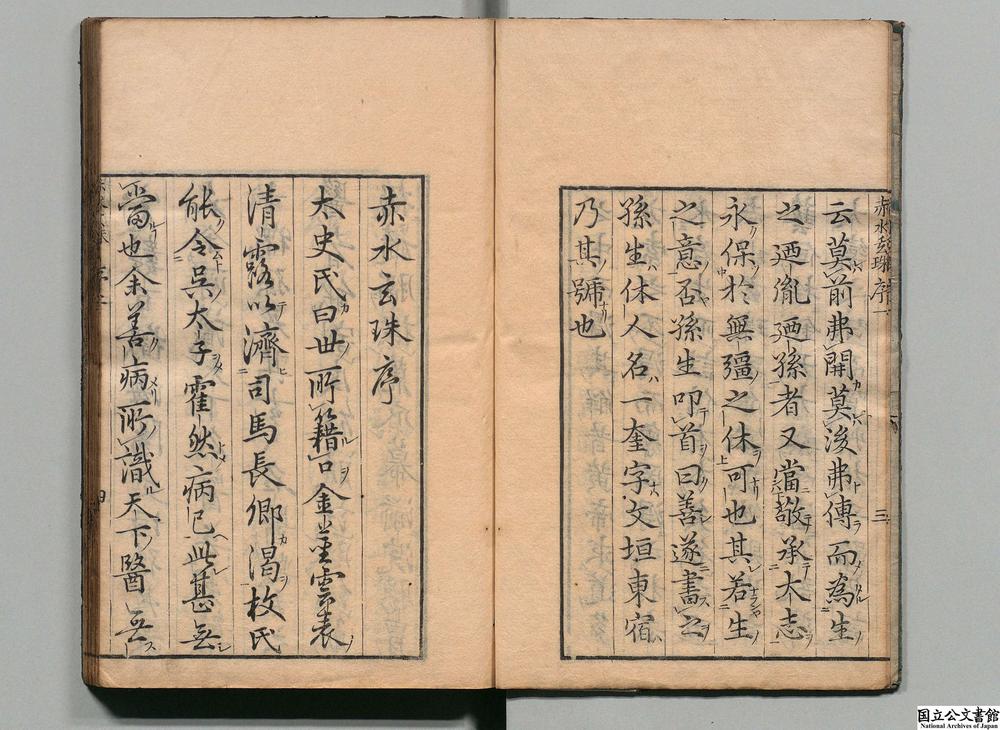 赤水玄珠序一 三
云莫前弗開莫後弗傳而為生
之迺胤迺孫者又當敬承太志
永保於無彊之休可也其若生
之意否孫生叩首曰善遂書之
孫生休人名一奎字文垣東宿
乃其號也
赤水玄珠序
太史氏曰世所籍口金莖雲表
清露以濟司馬長卿渴枚氏
能令吳太子霍然病已此甚無
當也余善病所識天下醫無
四
国立公文書館
National Archives of Japan